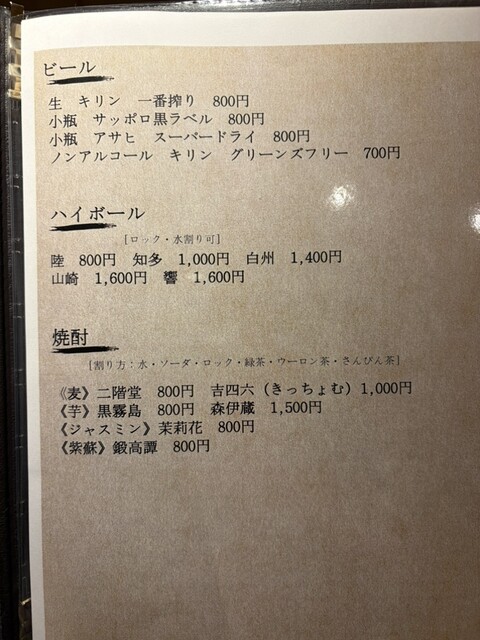 ビール
生　キリン　一番搾り　800円
小瓶　サッポロ黒ラベル　800円
小瓶　アサヒ　スーパードライ　800円
ノンアルコール　キリン　グリーンズフリー　700円
ハイボール
［ロック・水割り可］
陸　800円　知多　1,000円　白州　1,400円
山崎　1,600円　響　1,600円
焼酎
［割り方：水・ソーダ・ロック・緑茶・ウーロン茶・さんぴん茶］
《麦》二階堂　800円　吉四六（きっちょむ）1,000円
《芋》黒霧島　800円　森伊蔵　1,500円
《ジャスミン》茉莉花　800円
《紫蘇》鍛高譚　800円